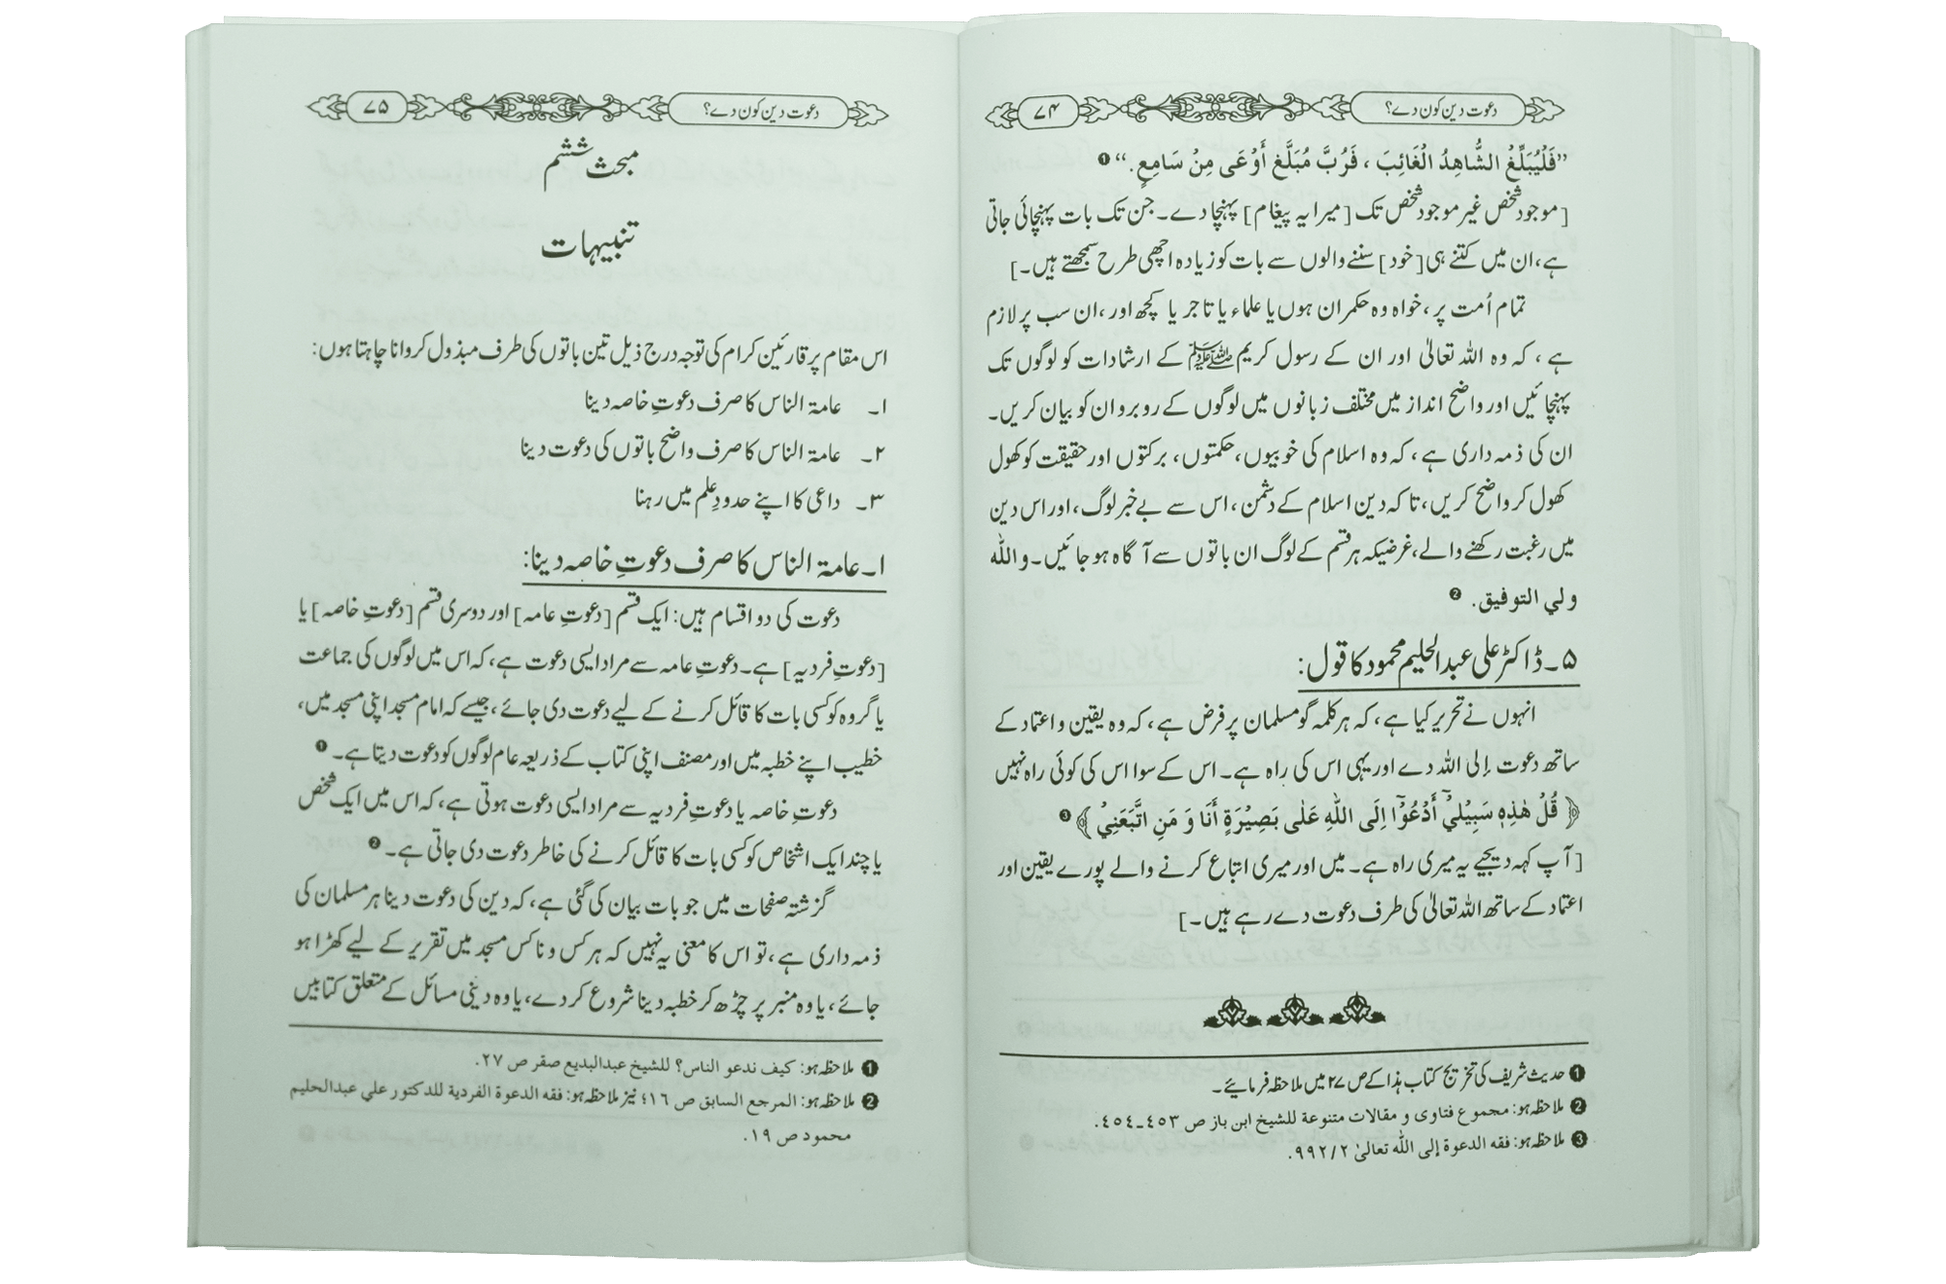 دعوت دین کون دے؟ ۷۴
”فَلْيُبَلِّغِ الشَّاهِدُ الْغَائِبَ ، فَرُبَّ مُبَلَّغٍ أَوْعَى مِنْ سَامِعٍ.“ ❶
[موجود شخص غیر موجود شخص تک [میرا یہ پیغام] پہنچا دے۔ جن تک بات پہنچائی جاتی
ہے، ان میں کتنے ہی [خود] سننے والوں سے بات کو زیادہ اچھی طرح سمجھتے ہیں۔]
تمام اُمت پر، خواہ وہ حکمران ہوں یا علماء یا تاجر یا کچھ اور، ان سب پر لازم
ہے، کہ وہ اللہ تعالیٰ اور ان کے رسول کریم ﷺ کے ارشادات کو لوگوں تک
پہنچائیں اور واضح انداز میں مختلف زبانوں میں لوگوں کے روبرو ان کو بیان کریں۔
ان کی ذمہ داری ہے، کہ وہ اسلام کی خوبیوں، حکمتوں، برکتوں اور حقیقت کو کھول
کھول کر واضح کریں، تا کہ دین اسلام کے دشمن، اس سے بے خبر لوگ، اور اس دین
میں رغبت رکھنے والے، غرضیکہ ہر قسم کے لوگ ان باتوں سے آگاہ ہو جائیں۔ واللہ
ولي التوفيق. ❷
۵۔ ڈاکٹر علی عبدالحلیم محمود کا قول:
انہوں نے تحریر کیا ہے، کہ ہر کلمہ گو مسلمان پر فرض ہے، کہ وہ یقین و اعتماد کے
ساتھ دعوت إلی اللہ دے اور یہی اس کی راہ ہے۔ اس کے سوا اس کی کوئی راہ نہیں
﴿قُلْ هٰذِهٖ سَبِيْلِيْٓ أَدْعُوْٓا اِلَى اللّٰهِ عَلٰى بَصِيْرَةٍ أَنَا وَ مَنِ اتَّبَعَنِيْ﴾ ❸
[آپ کہہ دیجیے یہ میری راہ ہے۔ میں اور میری اتباع کرنے والے پورے یقین اور
اعتماد کے ساتھ اللہ تعالیٰ کی طرف دعوت دے رہے ہیں۔]
❶ حدیث شریف کی تخریج کتاب ہذا کے ص ۲۷ میں ملاحظہ فرمائیے۔
❷ ملاحظہ ہو: مجموع فتاوى و مقالات متنوعة للشيخ ابن باز ص ٤٥٣۔٤٥٤.
❸ ملاحظہ ہو: فقه الدعوة إلى الله تعالىٰ ٩٩٢/٢.
دعوت دین کون دے؟ ۷۵
مبحث ششم
تنبیہات
اس مقام پر قارئین کرام کی توجہ درج ذیل تین باتوں کی طرف مبذول کروانا چاہتا ہوں:
۱۔ عامة الناس کا صرف دعوتِ خاصہ دینا
۲۔ عامة الناس کا صرف واضح باتوں کی دعوت دینا
۳۔ داعی کا اپنے حدودِ علم میں رہنا
۱۔ عامة الناس کا صرف دعوتِ خاصہ دینا:
دعوت کی دو اقسام ہیں: ایک قسم [دعوتِ عامہ] اور دوسری قسم [دعوتِ خاصہ] یا
[دعوتِ فردیہ] ہے۔ دعوتِ عامہ سے مراد ایسی دعوت ہے، کہ اس میں لوگوں کی جماعت
یا گروہ کو کسی بات کا قائل کرنے کے لیے دعوت دی جائے، جیسے کہ امام مسجد اپنی مسجد میں،
خطیب اپنے خطبہ میں اور مصنف اپنی کتاب کے ذریعہ عام لوگوں کو دعوت دیتا ہے۔ ❶
دعوتِ خاصہ یا دعوتِ فردیہ سے مراد ایسی دعوت ہوتی ہے، کہ اس میں ایک شخص
یا چند ایک اشخاص کو کسی بات کا قائل کرنے کی خاطر دعوت دی جاتی ہے۔ ❷
گزشتہ صفحات میں جو بات بیان کی گئی ہے، کہ دین کی دعوت دینا ہر مسلمان کی
ذمہ داری ہے، تو اس کا معنی یہ نہیں کہ ہر کس و ناکس مسجد میں تقریر کے لیے کھڑا ہو
جائے، یا وہ منبر پر چڑھ کر خطبہ دینا شروع کر دے، یا وہ دینی مسائل کے متعلق کتابیں
❶ ملاحظہ ہو: كيف ندعو الناس؟ للشيخ عبدالبديع صقر ص ٢٧.
❷ ملاحظہ ہو: المرجع السابق ص ١٦؛ نیز ملاحظہ ہو: فقه الدعوة الفردية للدكتور علي عبدالحليم
محمود ص ١٩.